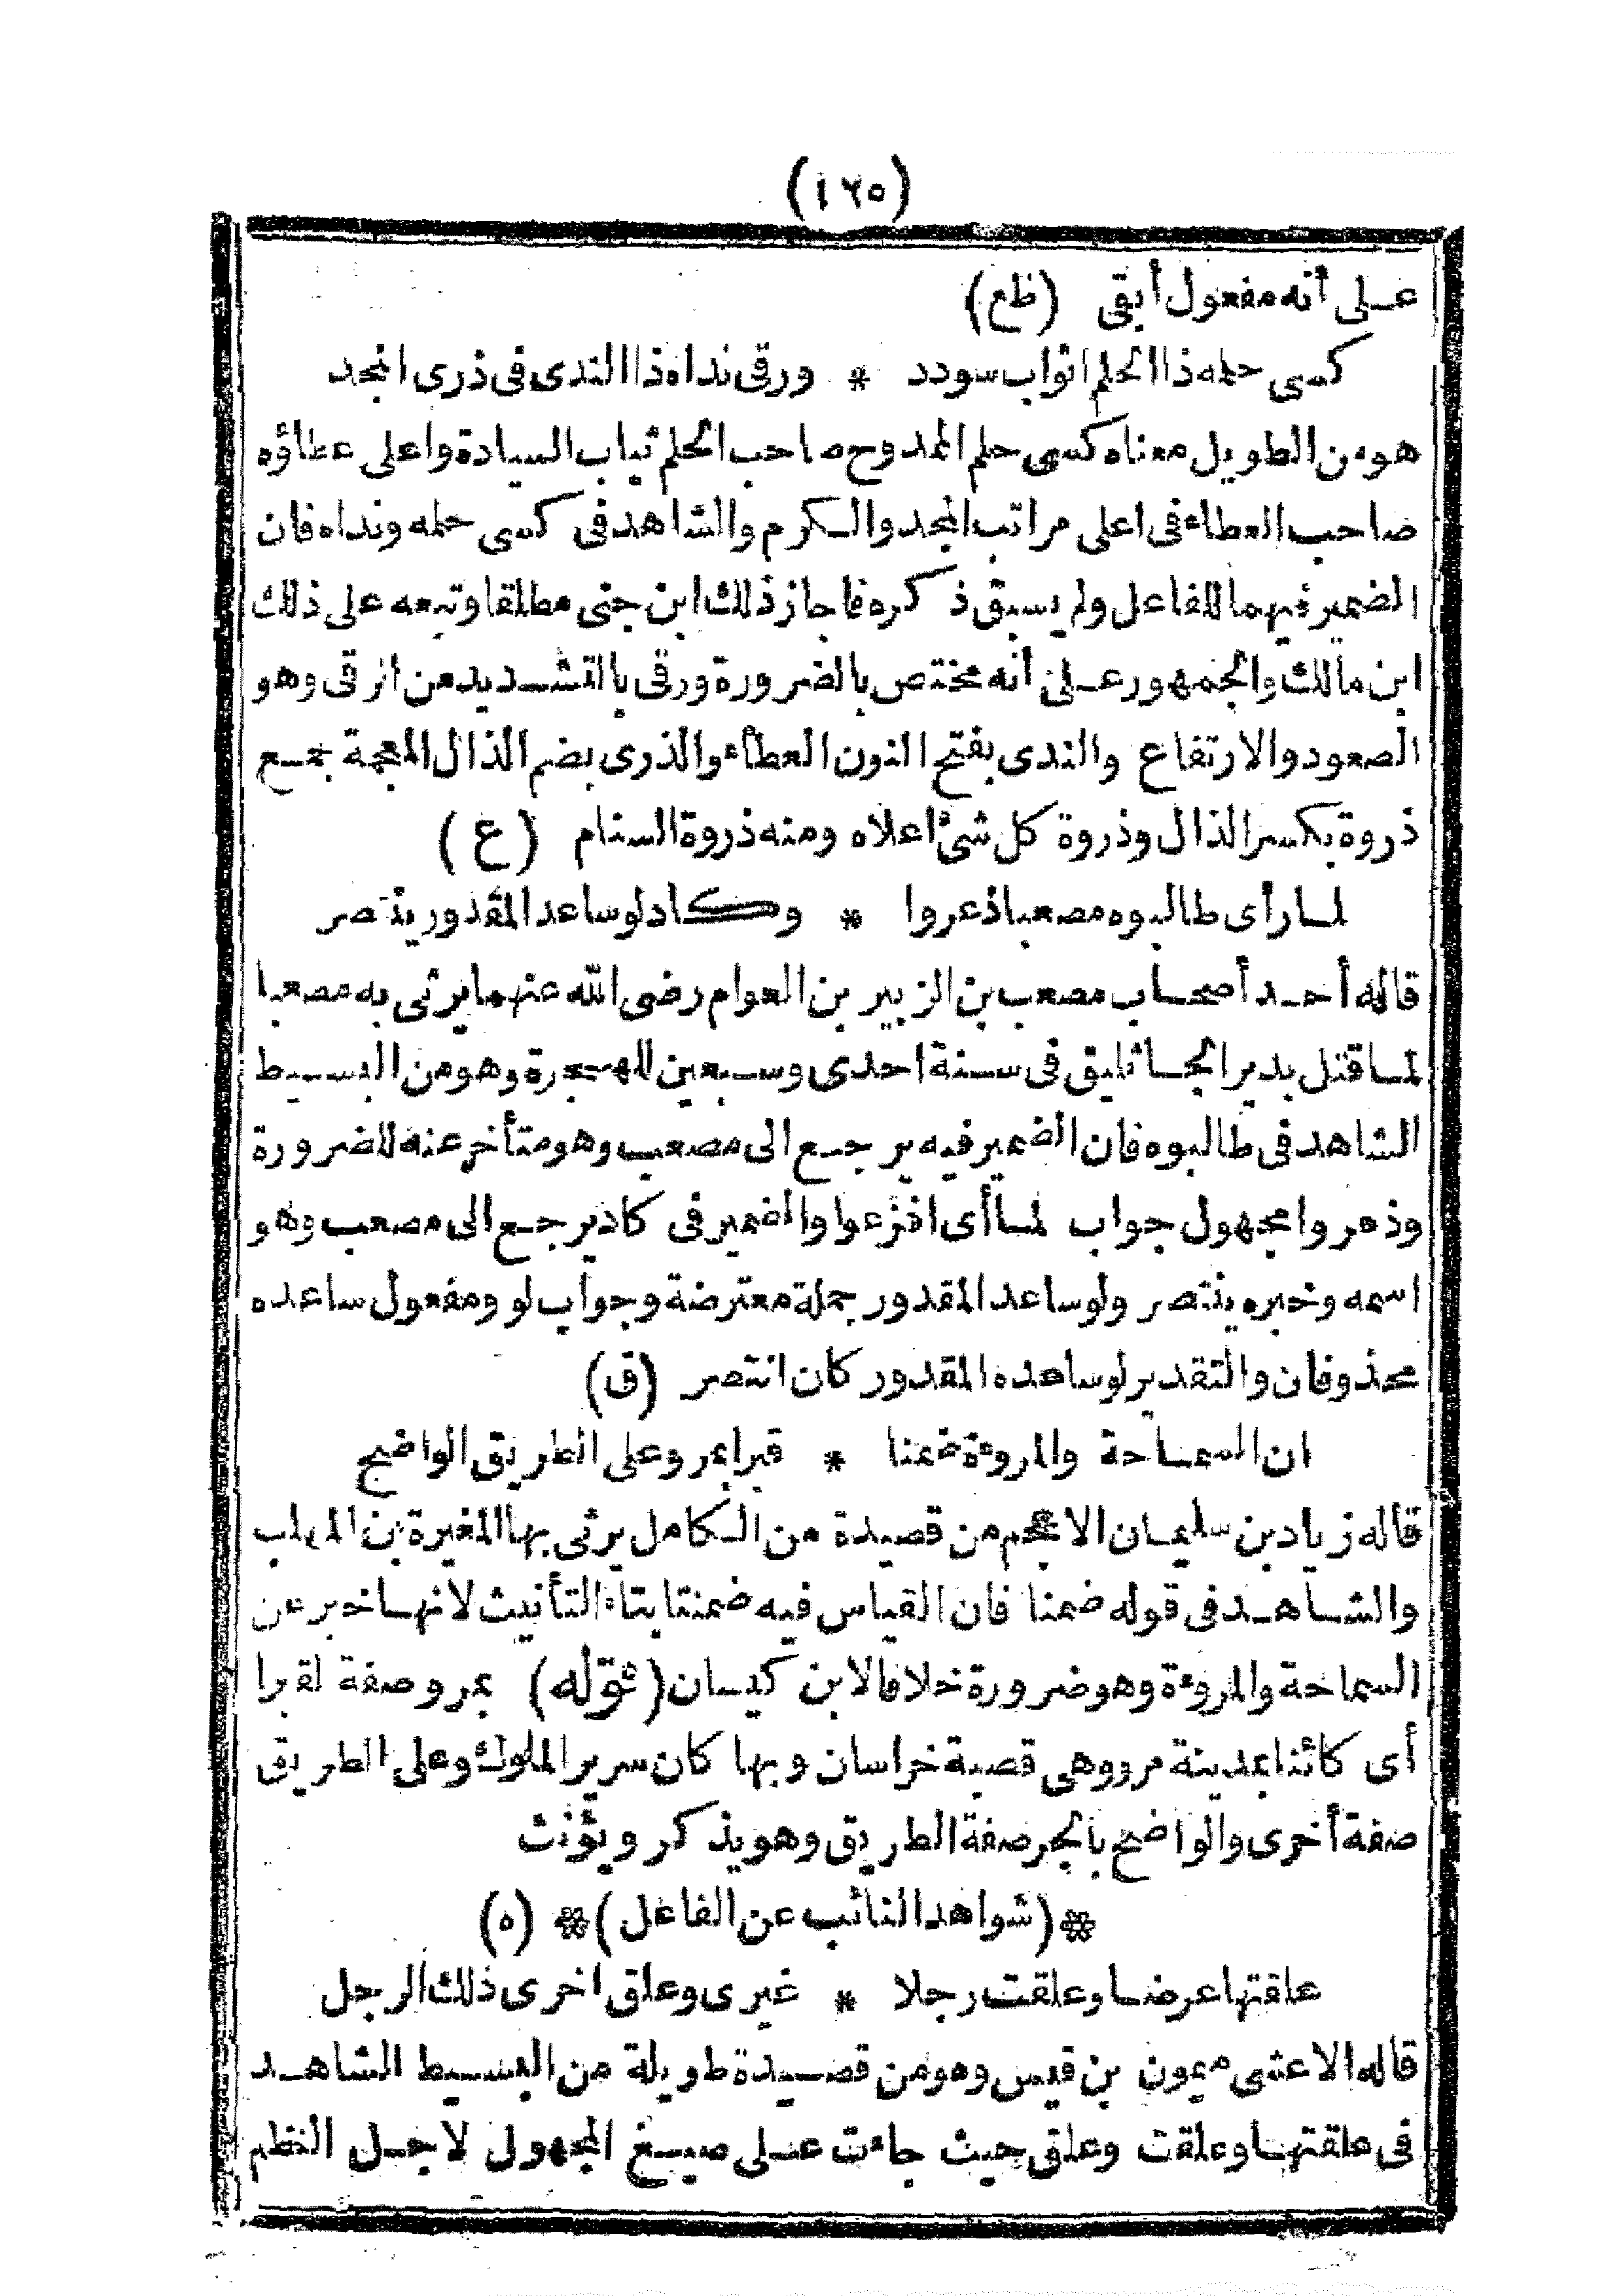 (١٢٥)
على أنه مفعول أبقى (ظع)
كسى حلمه ذا الحلم اثواب سودد * ورقى نداه ذا الندى فى ذرى المجد
هو من الطويل معناه كسى حلم الممدوح صاحب الحلم ثياب السيادة واعلى عطاؤه
صاحب العطاء فى اعلى مراتب المجد والكرم والشاهد فى كسى حلمه ونداه فان
الضمير فيهما للفاعل ولم يسبق ذكره فاجاز ذلك ابن جنى مطلقا وتبعه على ذلك
ابن مالك والجمهور على أنه مختص بالضرورة ورقى بالتشديد من الرقى وهو
الصعود والارتفاع والندى بفتح النون العطاء والذرى بضم الذال المعجمة جمع
ذروة بكسر الذال وذروة كل شئ اعلاه ومنه ذروة السنام (ع)
لما رأى طالبوه مصعبا ذعروا * وكاد لو ساعد المقدور ينتصر
قاله أحد أصحاب مصعب بن الزبير بن العوام رضى الله عنهما يرثى به مصعبا
لما قتل بدير الجاثليق فى سنة احدى وسبعين للهجرة وهو من البسيط
الشاهد فى طالبوه فان الضمير فيه يرجع الى مصعب وهو متأخر عنه للضرورة
وذعروا مجهول جواب لما أى افزعوا والضمير فى كاد يرجع الى مصعب وهو
اسمه وخبره ينتصر ولو ساعد المقدور جملة معترضة وجواب لو ومفعول ساعده
محذوفان والتقدير لو ساعده المقدور كان انتصر (ق)
ان السماحة والمروءة ضمنا * قبرا بمرو على الطريق الواضح
قاله زياد بن سليمان الاعجم من قصيدة من الكامل يرثى بها المغيرة بن المهلب
والشاهد فى قوله ضمنا فان القياس فيه ضمنتا بتاء التأنيث لانها خبر عن
السماحة والمروءة وهو ضرورة خلافا لابن كيسان (قوله) بمرو صفة لقبرا
أى كائنا بمدينة مرو وهى قصبة خراسان وبها كان سرير الملوك وعلى الطريق
صفة أخرى والواضح بالجر صفة الطريق وهو يذكر ويؤنث
* (شواهد النائب عن الفاعل) * (ه)
علقتها عرضا وعلقت رجلا * غيرى وعلق اخرى ذلك الرجل
قاله الاعشى ميمون بن قيس وهو من قصيدة طويلة من البسيط الشاهد
فى علقتها وعلقت وعلق حيث جاءت على صيغ المجهول لاجل النظم